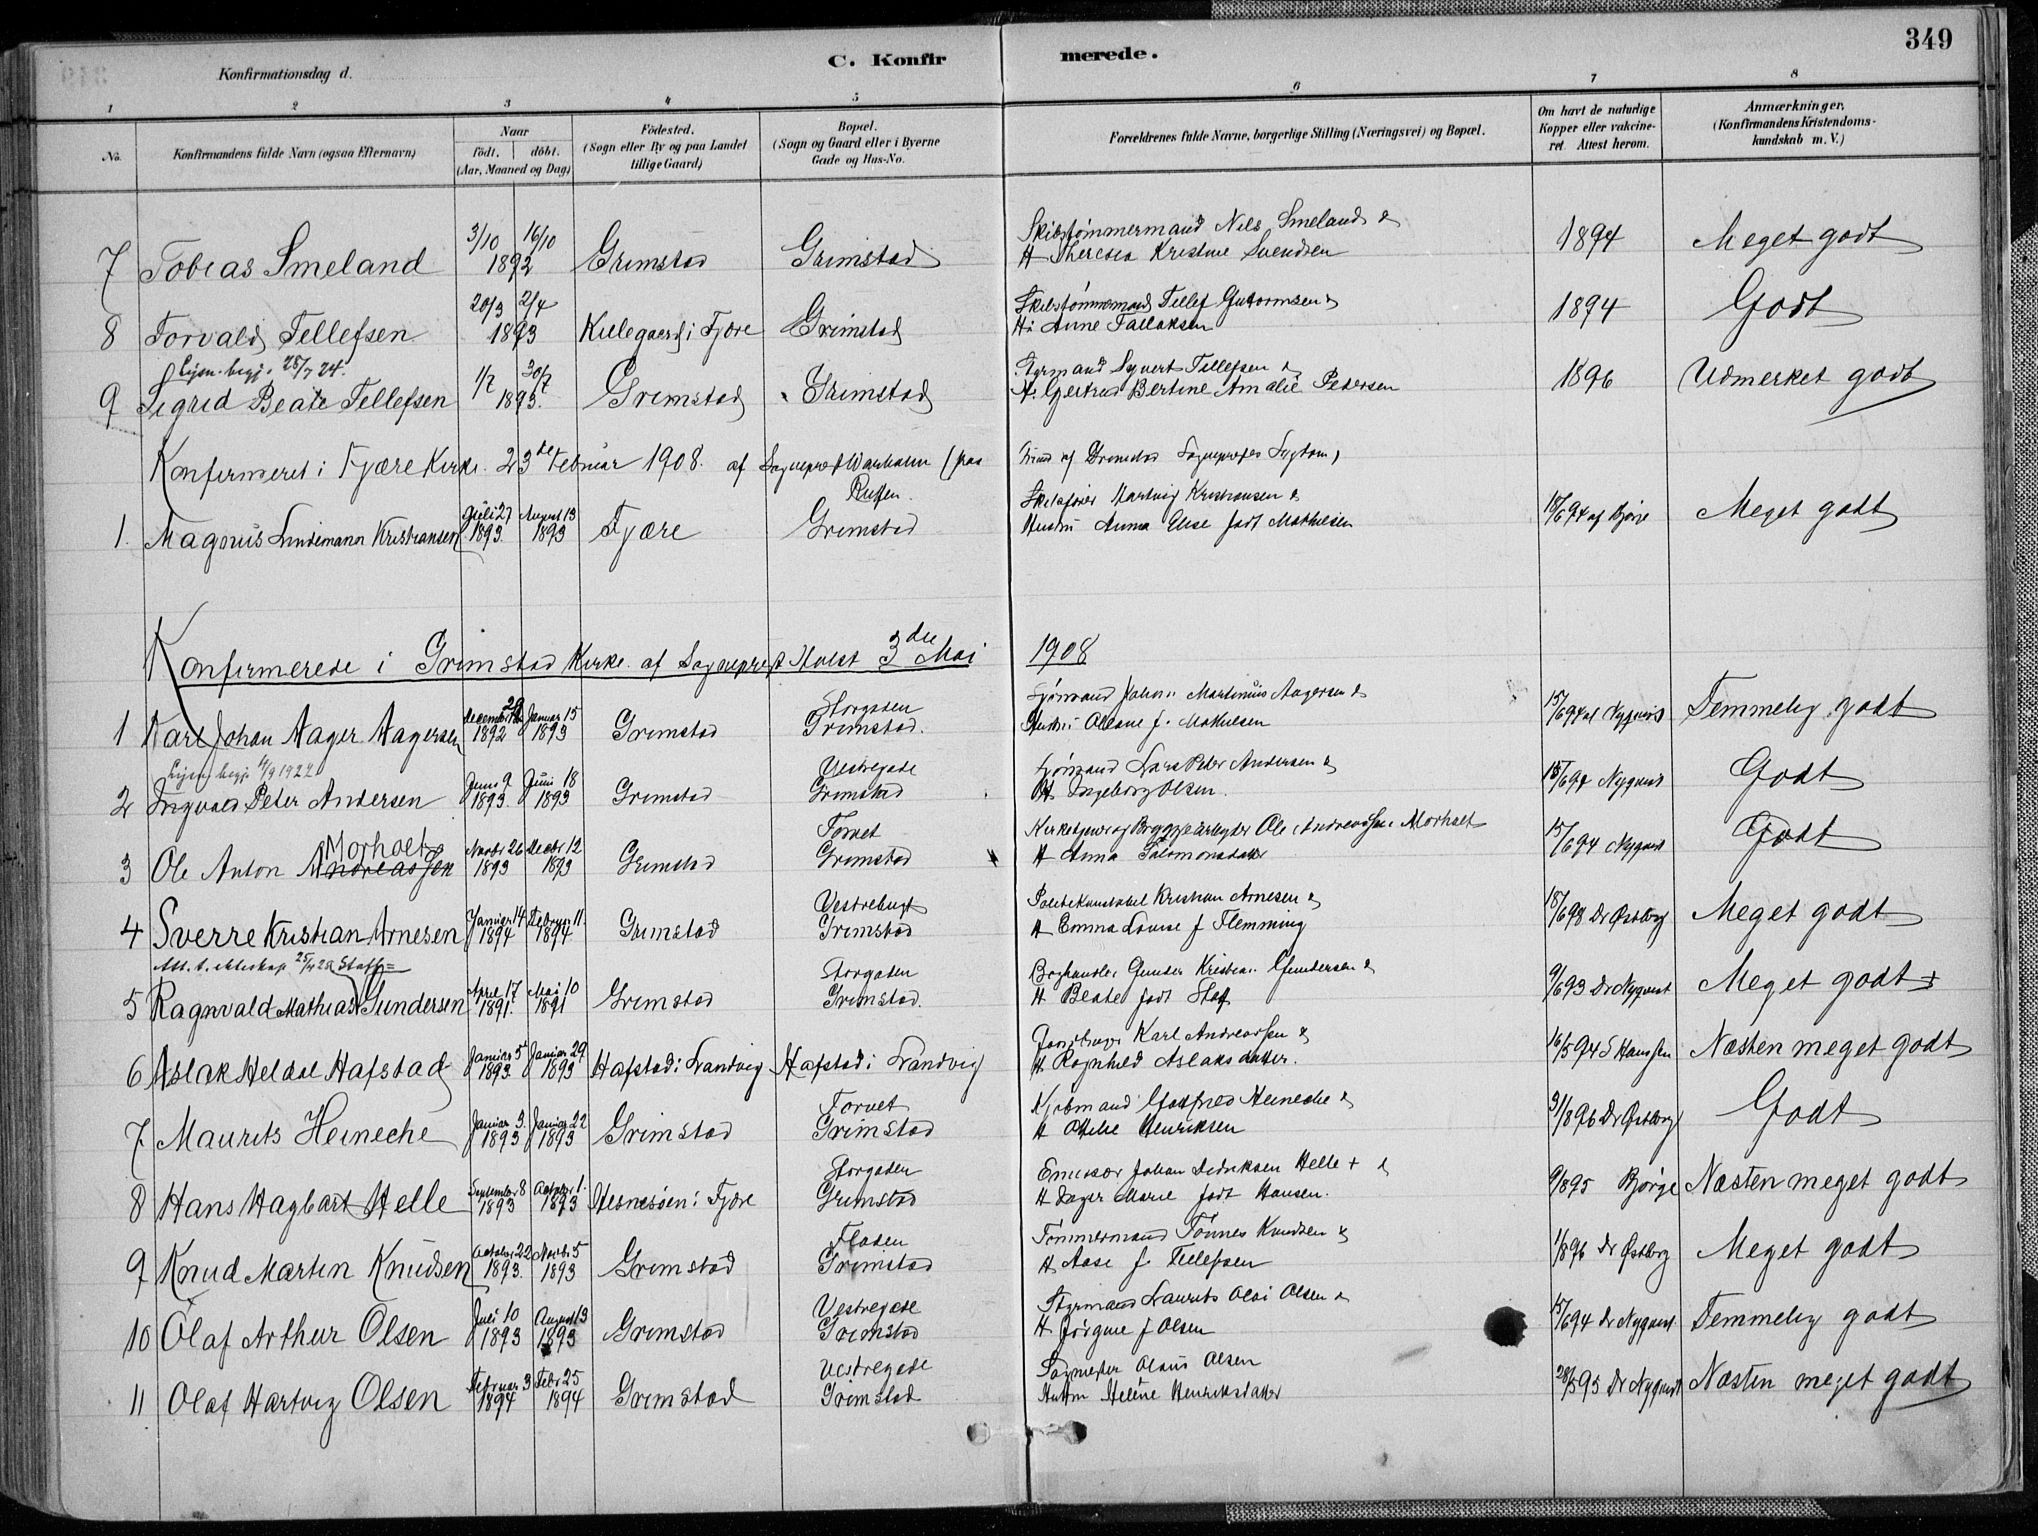 349
Konfirmationsdag d.
C. Konfirmerede.
1 2 3 4 5 6 7 8
No. Konfirmandens fulde Navn (ogsaa Efternavn)
Naar født. døbt. (Aar, Maaned og Dag)
Fødested. (Sogn eller By og paa Landet tillige Gaard)
Bopæl. (Sogn og Gaard eller i Byerne Gade og Hus-No.
Forældrenes fulde Navne, borgerlige Stilling (Næringsvei) og Bopæl.
Om havt de naturlige Kopper eller vakcineret. Attest herom.
Anmærkninger. (Konfirmandens Kristendomskundskab m. V.)
Skibstømmermand Nils Smeland &
7 Tobias Smeland 3/10 16/10 1892 Grimstad Grimstad H Theresia Kristine Svendsen 1894 Meget godt
Skibstømmermand Tellef Guttormsen &
8 Torvald Tellefsen 20/3 2/4 1893 i Fjære Grimstad H: Anne Tallaksen 1894 Godt
Lysn. begj. 28/7 24. Styrmand Syvert Tellefsen &
9 Sigrid Beate Tellefsen 1/7 30/7 1893. Grimstad Grimstad H. Gjertrud Bertine Amalie Pedersen 1896 Udmerket godt
Konfirmeret i Fjære Kirke 23de Februar 1908 af Sogneprest (paa
Skibsfører Hartvig Kristiansen &
1. Magnus Lindemann Kristiansen Juli 27 1893. August 13 1893 Fjære Grimstad Hustru Anna Elise født Mathisen 18/6 94 af Bjørge Meget godt
Konfirmerede i Grimstad Kirke af Sogneprest Holst 3die Mai 1908
Storgaden Sjømand Johan Martinius Aagersen &
1 Karl Johan Aager Aagersen December 29 1892 Januar 15 1893 Grimstad Grimstad. Hustru Oleane f. Mathisen 15/6 94 af Nyquist Temmelig godt
Lysn. begj. 1922 Vestregade Sjømand Lars Peter Andersen &
2 Ingvald Peter Andersen Juni 9 1893. Juni 18 1893 Grimstad Grimstad H Ingeborg Olsen. 15/6 94 Nyquist Godt
Morholt Torvet Kirketjener og Bryggearbeyder Ole Andreassen Morholt
3 Ole Anton Andreassen Novbr 26 1893 Decbr 12 1893 Grimstad Grimstad H Anna Salomonsdatter 15/6 94 Nyquist Godt
Vestrebugt Politikonstabel Kristian Arnesen &
4 Sverre Kristian Arnesen Januar 14 1894 Februar 11. 1894 Grimstad Grimstad H Emma Lovise f Flemming 18/6 98 Dr Østberg Meget godt
Att. t. ekteskap 25/4 25 Staff= Storgaden Boghandler Gunder Kristian Gundersen &
5 Ragnvald Mathias Gundersen April 17 1891. Mai 10 1891 Grimstad Grimstad. H Beate født Staf 9/6 93 Dr Nyquist Meget godt +
Karl Andreassen &
6 Aslak Heldal Hafstad Januar 5 1893. Januar 29 1893 Hafstad i Landvig Hafstad i Landvig H Ragnhild Aslaksdatter. 16/5 94 S Hanssen Næsten meget godt
Torvet Kjøbmand Gotfred Heineche &
7 Maurits Heineche Januar 3. 1893 Januar 22 1893 Grimstad Grimstad H Othilie Henriksen 31/8 96 Dr Østberg Godt
Storgaden Emissær Johan Didriksen Helle + &
8 Hans Hagbart Helle September 8 1893 October 1. 1893 Hesnesøen i Fjære Grimstad H Dager Marie født Hansen. 9/8 95 Bjørge Næsten meget godt
Floden Tømmermand Tønnes Knudsen &
9 Knud Martin Knudsen October 22 1893. Novbr 5 1893 Grimstad Grimstad H Aase f. Tellefsen 1/8 96 Dr Østberg Meget godt
Vestregade Styrmand Laurits Olai Olsen &
10 Olaf Arthur Olsen Juli 10 1893 August 13 1893 Grimstad Grimstad H Jørgine f Olsen 15/6 94 Dr Nyquist Temmelig godt
Vestregade Olaus Olsen
11 Olaf Hartvig Olsen Februar 3 1894 Febr 25 1894 Grimstad Grimstad Hustru Helene Henriksdatter 28/5 95 Dr Nyquist Næsten meget godt